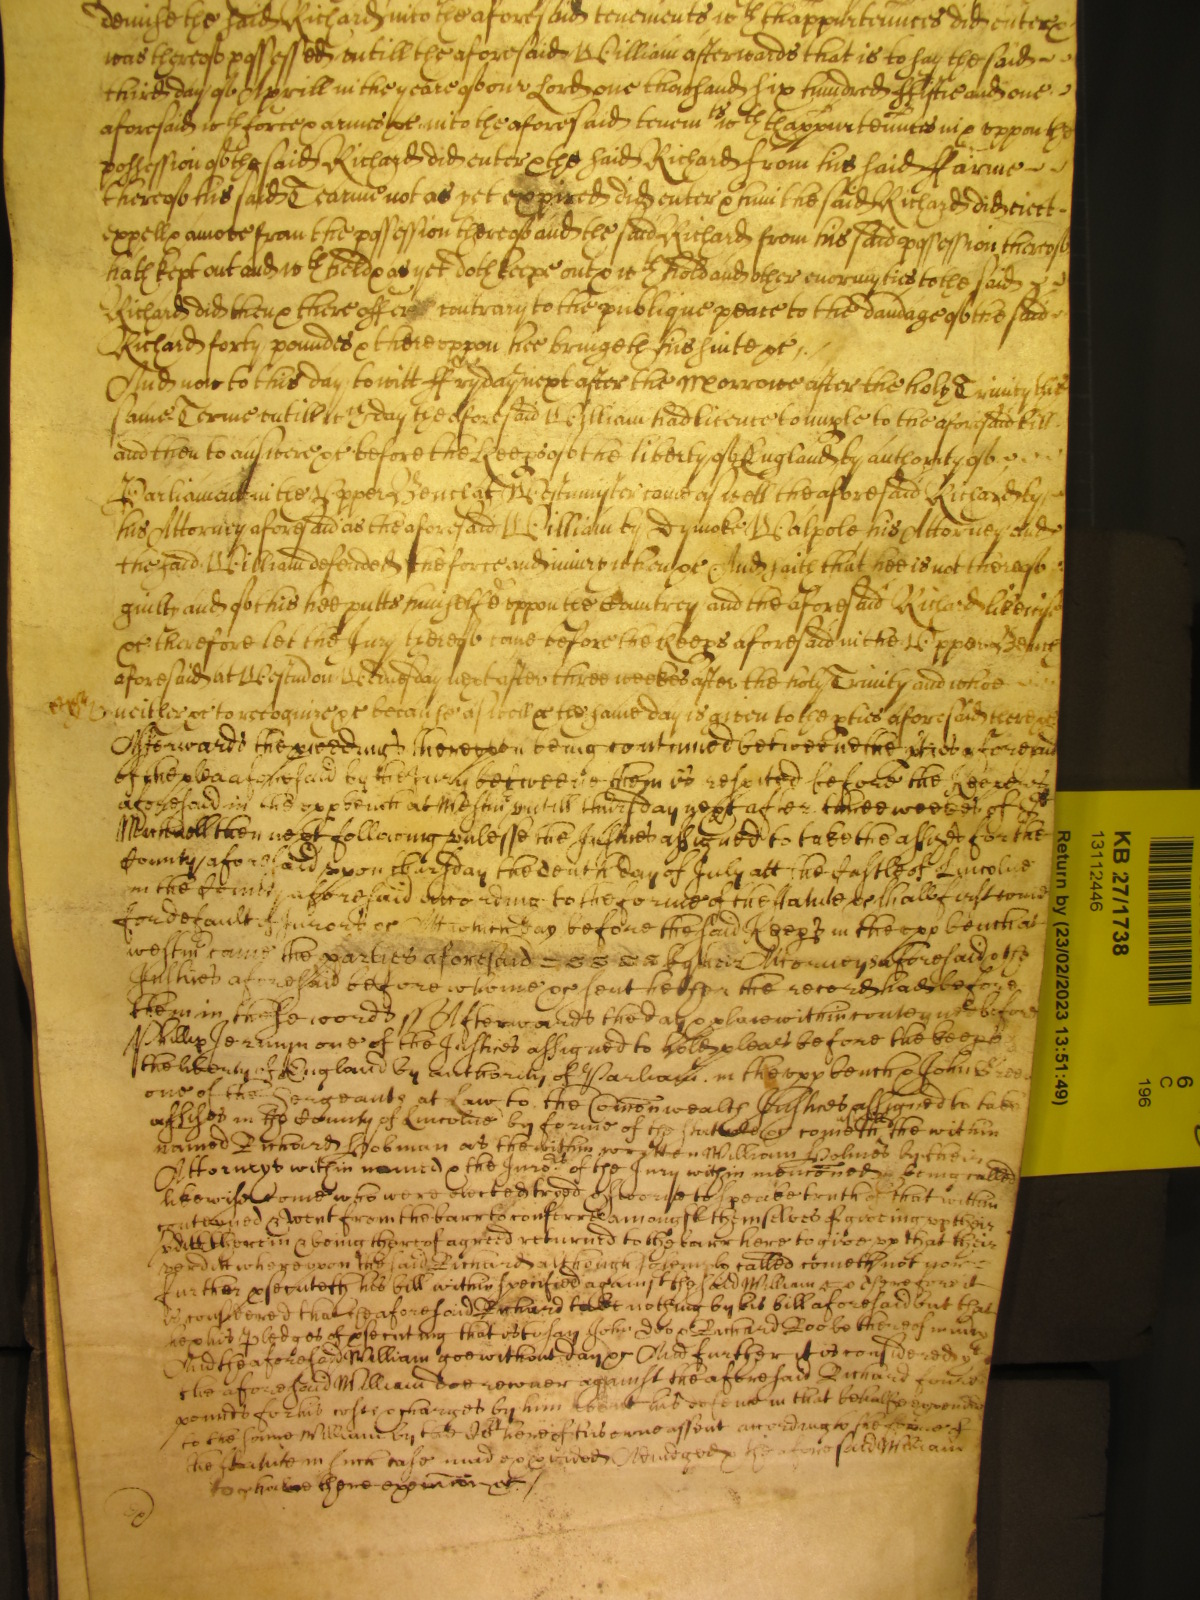 demise the said Richard into the aforesaid tenements wth thappurtennces did enter &
was thereof possessed untill the aforesaid William afterwards that is to say the said
third day of Aprill in the yeare of our Lord one thousand six hundred fiftie and one
aforesaid wth force & armes &c into the aforesaid tenemts wth thappurtennces in & uppon the
possession of the said Richard did enter & the said Richard from his said ffarme
thereof his said Tearme not as yet expired did enter & him the said Richard did eiect
expell & amove from the possession thereof and the said Richard from his said possession thereof
hath kept out and wth held & as yet doth keepe out & wth hold and other enormyties to the said
Richard did then & there offer contrary to the publique peace to the damage of the said
Richard forty poundes & thereuppon hee bringeth his suite &c
And now to this day to witt ffryday next after the Morrowe after the holy Trinity this
same Terme untill wch day the aforesaid William had licence to imple to the aforesaid bill
and then to answere &c before the Keeps of the liberty of England by authority of
Parliament in the Upper Bench at Westminster came aswell the aforesaid Richard by
his Attorney aforesaid as the aforesaid William by Dymoke Walpole his Attorney and
the said William defended the force and iniury when &c And saith that hee is not thereof
guilty and of this hee putts himselfe uppon the Countrey and the aforesaid Richard likewise
&c therefore let the Jury thereof come before the Keeps aforesaid in the Upper Bench
aforesaid at Westm on Wednesday next after three weekes after the holy Trinity and whoe
neither &c to recognize &c because aswell &c the same day is given to the pties aforesaid there &c
Afterwards the pceedings thereuppon being continued betweene the pties aforesaid
of the plea aforesaid by the Jury betweene them is respited before the Keepers
aforesaid in the upp bench at Westm untill Thursday next after three weekes of St
Michaell then next following unlesse the Justices assigned to take the assizes for the
County aforesaid uppon thursday the tenth day of July att the Castle of Lincolne
in the County aforesaid according to the forme of the statute &c shall first come
for default of Jurors &c Att which day before the said Keeps in the upp bench at
westm came the parties aforesaid by their Attorneys aforesaid & the
Justices aforesaid before whome &c sent hether the record had before
them in these words Afterwards the day & place within conteyned before
Phillip Jermyn one of the Justices assigned to hold pleas before the keeps
the liberty of England by authority of Parliam in the upp bench & John Gree
one of the Sergeants at Law to the Comonwealth Justices assigned to take
assises in the County of Lincolne by forme of the statute &c cometh the within
named Richard Hobman as the within written William Holmes by their
Attorneys within named & the Jurors of the Jury within mencioned being called
likewise come who were elected tryed & sworne to speake truth of that within
conteyned & went from the barr to conferre amongst themselves of giveing up their
vdict therein & being thereof agreed returned to the barr here to give up that their
verdict whereupon the said Richard although solemply called cometh not nor
further psecuteth his bill within specified against the said William &c Therefore it
is considered that the aforesaid Richard take nothing by his bill aforesaid but that
he & his pledges of psecuting that is to say John Doo & Richard Roo be thereof in mercy
And the aforesaid William goe without day &c And further it is considered yt
the aforesaid William doe recover against the aforesaid Richard
pounds for his costs & charges by him about his defence in that behalfe expended
to the same William by the Court here of his owne assent according to the forme of
the statute in such case made & provided Adiudged & the aforesaid William
to have there execucon &c
KB 27/1738
13112446
Return by (23/02/2023 13:51:49)
6
C
196